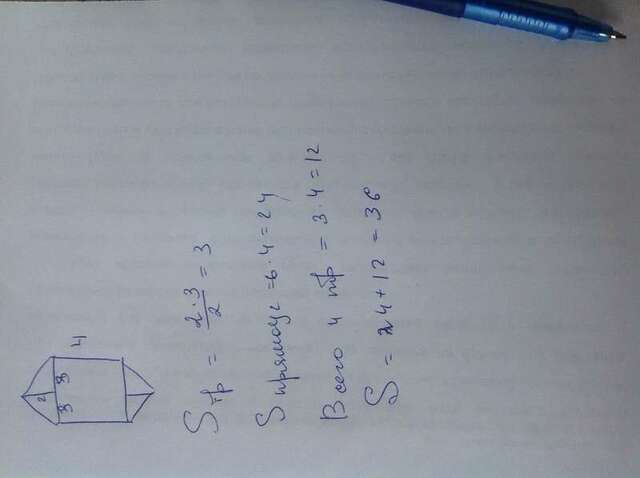 4
2
3 3
S тр = 2·3/2 = 3
S прямоуг = 6·4 = 24
Всего 4 тр = 3·4 = 12
S = 24 + 12 = 36